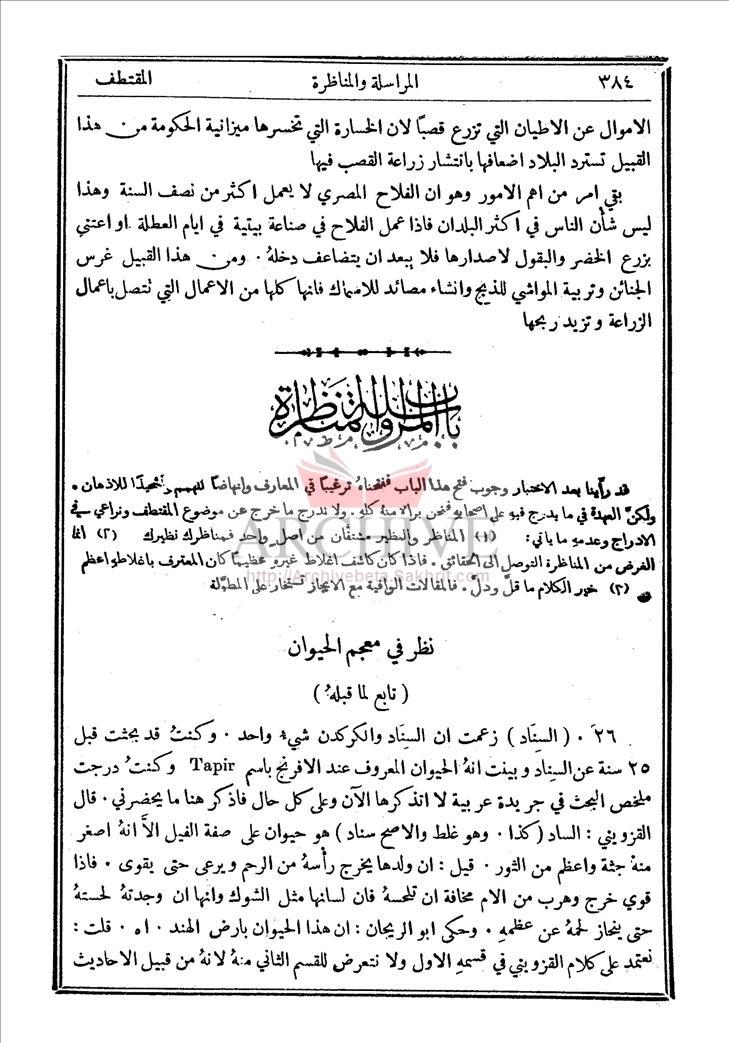 ٣٨٤ المراسلة والمناظرة المقتطف
الاموال عن الاطيان التي تزرع قصباً لان الخسارة التي تخسرها ميزانية الحكومة من هذا
القبيل تسترد البلاد اضعافها بانتشار زراعة القصب فيها
بقي امر من اهم الامور وهو ان الفلاح المصري لا يعمل اكثر من نصف السنة وهذا
ليس شأن الناس في اكثر البلدان فاذا عمل الفلاح في صناعة بيتية في ايام العطلة او اعتنى
بزرع الخضر والبقول لاصدارها فلا يبعد ان يتضاعف دخلهُ ٠ ومن هذا القبيل غرس
الجنائن وتربية المواشي للذبح وانشاء مصائد للاسماك فانها كلها من الاعمال التي نتصل باعمال
الزراعة وتزيد ربحها
باب المراسلة والمناظرة
قد رأينا بعد الاختبار وجوب فتح هذا الباب ففتحناهُ ترغيباً في المعارف وانهاضاً للهمم وتشحيذاً للاذهان ٠
ولكنَّ العهدة في ما يدرج فيهِ على اصحابهِ فنحن برالا منهُ كلهِ ٠ ولا ندرج ما خرج عن موضوع المقتطف ونراعي في
الادراج وعدمهِ ما ياتي : (١) المناظر والنظير مشتقّان من اصل واحد فمناظرك نظيرك (٢) انما
الغرض من المناظرة التوصل الى الحقائق ٠ فاذا كان كاشف اغلاط غيرهِ عظيماً كان المعترف باغلاطهِ اعظم
(٣) خير الكلام ما قلَّ ودلَّ ٠ فالمقالات الوافية مع الايجاز تستخار على المطوَّلة
ARCHIVE
http://Archivebeta.Sakhrit.com
نظر في معجم الحيوان
( تابع لما قبلهُ )
٢٦ ٠ ( السِنَاد ) زعمت ان السِنَاد والكركدن شيءٌ واحد ٠ وكنتُ قد بحثت قبل
٢٥ سنة عن السِناد وبينت انهُ الحيوان المعروف عند الافرنج باسم Tapir وكنتُ درجت
ملخص البحث في جريدة عربية لا اتذكرها الآن وعلى كل حال فاذكر هنا ما يحضرني ٠ قال
القزويني : الساد ( كذا ٠ وهو غلط والاصح سناد ) هو حيوان على صفة الفيل الاَّ انهُ اصغر
منهُ جثة واعظم من الثور ٠ قيل : ان ولدها يخرج رأسهُ من الرحم ويرعى حتى يقوى ٠ فاذا
قوي خرج وهرب من الام مخافة ان تلحسهُ فان لسانها مثل الشوك وانها ان وجدتهُ لحستهُ
حتى ينحاز لحمهُ عن عظمهِ ٠ وحكى ابو الريحان : ان هذا الحيوان بارض الهند ٠ اه ٠ قلت :
نعتمد على كلام القزويني في قسمهِ الاول ولا نتعرض للقسم الثاني منهُ لانهُ من قبيل الاحاديث